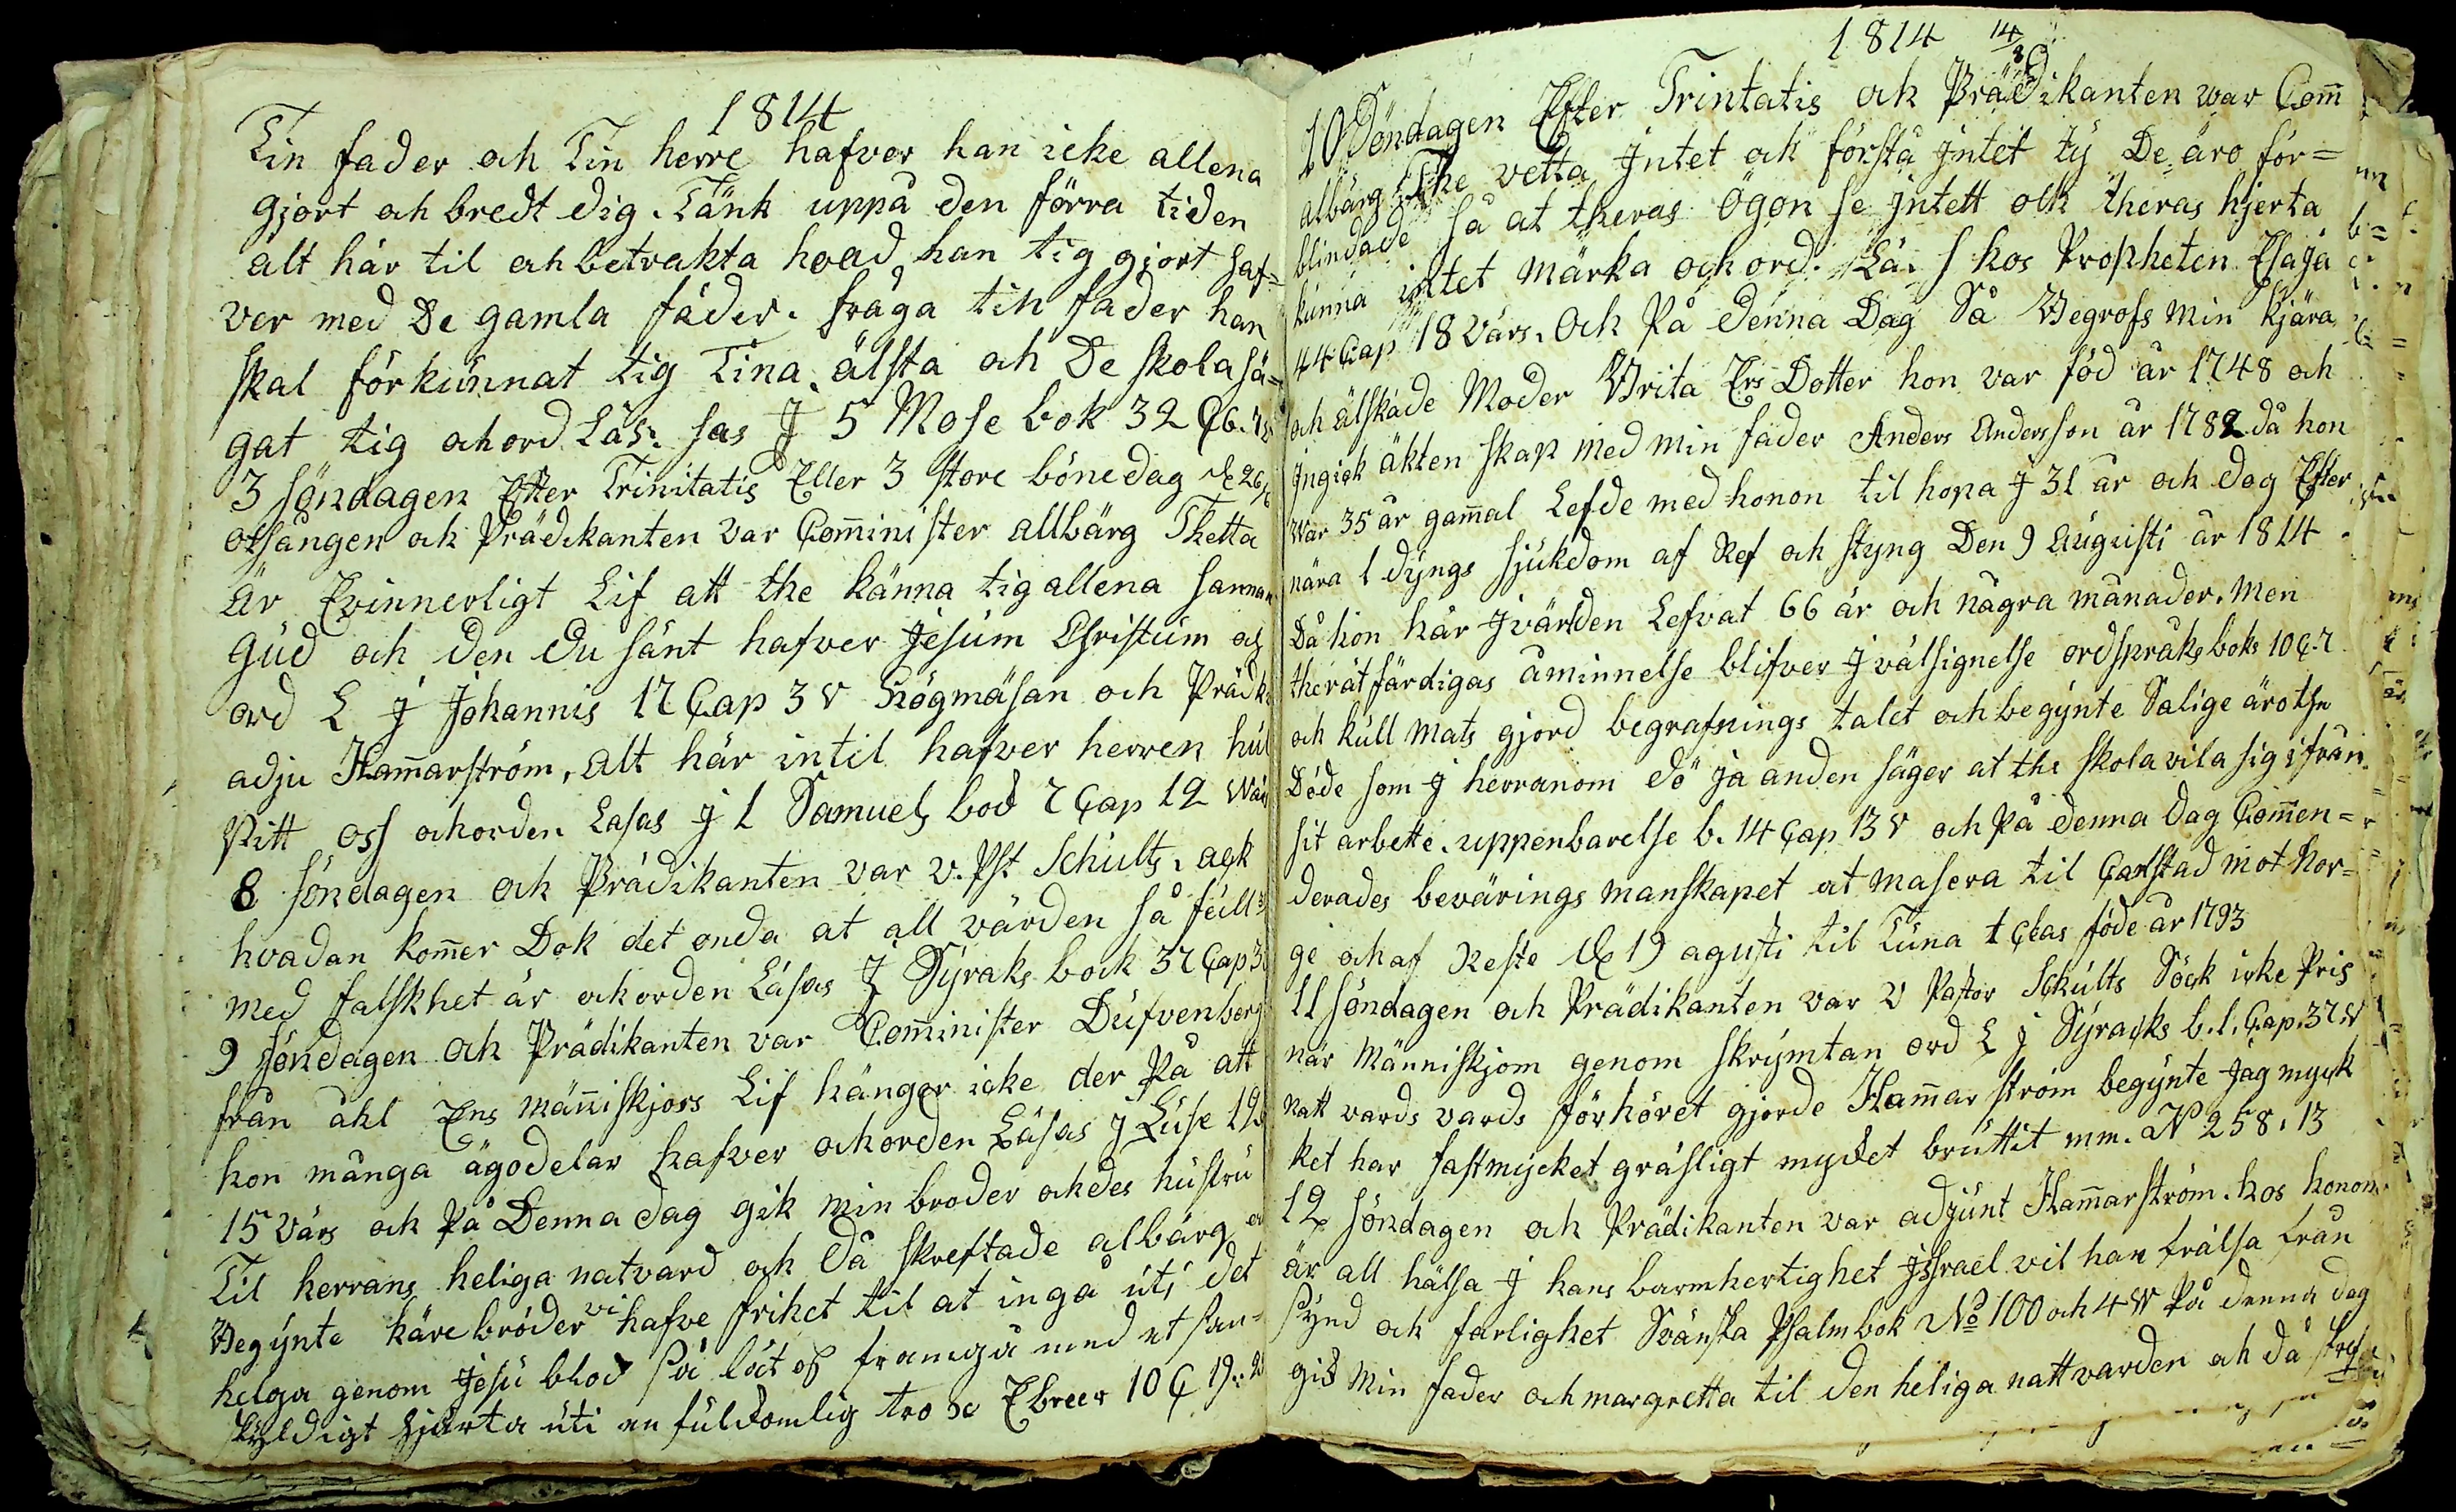 1814
Tin fader och Tin herre hafver han icke allena
gjort och bredt dig. Tänk uppå den förra tiden
alt här til och betrakta hvad han tig gjort haf=
ver med De gamla fäder. fråga tin fader han
skal förkunnat tig Tina älsta och De skola sä=
gat tig och ord Läs: sas J 5 Mose bok 32 C 6.
3 söndagen Efter Trinitatis Eller 3 store bönedag d 26/6
otsången och Prädikanten var Comminister allbärg Thetta
är Evinnerligt Lif att the känna tig allena sannan
Gud och den du sänt hafver Jesum Christum och
ord L J Johannis 17 Cap 3 v Högmäsan och Prädk
adju Hammarström, alt här intil hafver herren hul
pitt oss och orden Lasas J 1 Samuels bod 7 Cap 12 Wärs
8 söndagen och Prädikanten var v. Pst Schults. ack
hvadan kommer Dok det onda at all värden så full
med falskhet är och orden Läsas J Syraks bock 37 Cap 3
9 söndagen och Prädikanten var Comminister Dufvenberg
från åhl Ens Människjors Lif hänger icke der På att
hon många ägodelar hafver och orden Läsas J Luse 12
15 värs och På Denna dag gik min broder och des hustru
Til herrans heliga natvard och Då skreftade albärg
Begynte käre bröder vi hafve frihet til at ingå uti det
helga genom Jesu blod så låt oss framgå med et san=
skyldigt hjärta uti en fulkomlig tro Ebreer 10 C 19.
1814 14/8
10 Söndagen Efter Trintatis och Prädikanten war Comm
albärg The vetta Jntet och förstå jntet ty De äro för=
blindade så at theras Ögon se jntett och theras hjerta
kunna intet märka och ord. Lä. s hos Propheten Esaja
44 Cap 18 värs. Och På denna Dag Så Begrofs min kjära
och älskade Moder Brita Ers Dotter hon var föd år 1748 och
Jngick äkten skap med min fader Anders Andersson år 1782 då hon
war 35 år gammal Lefde med honon til hopa J 31 år och dog Efter
nära 1 dyngs sjukdom af Ref och styng Den 9 Augusti år 1814
Då hon här J världen Lefvat 66 år och några månader. Men
the rätfärdigas åminnelse blifver J välsignelse ordspråks boks 10 C. 7
och kull mats gjord begrafnings talet och begynte Salige äro the
Döde som J herranom dö ja anden säger at the skola vila sig ifrån
sit arbette. uppenbarelse b. 14 Cap 13 v och På denna dag Commen=
derades bevärings manskapet at masera til Carlstad mot Nor=
ge och af Reste d 19 agusti til Tuna 1 Clas föde år 1793
11 söndagen och Prädikanten var V Pastor Schults Söck icke Pris
när Människjom genom skrymtan ord L J Syracks b. 1. Cap. 37 W
Natt vards vards förhöret gjorde Hammarström begynte Jag myck
ket har fastmycket gräsligt mycket bruttit mm. N 258. 13
12 söndagen och Prädikanten var adjunt Hammarström. hos honom
är all hälsa J hans barmhertighet Jsrael vil han frälsa från
synd och farlighet Svänska Psalmbok No 100 och 4 W På denna dag
gik Min fader och margretta til den heliga nattvarden och då skref